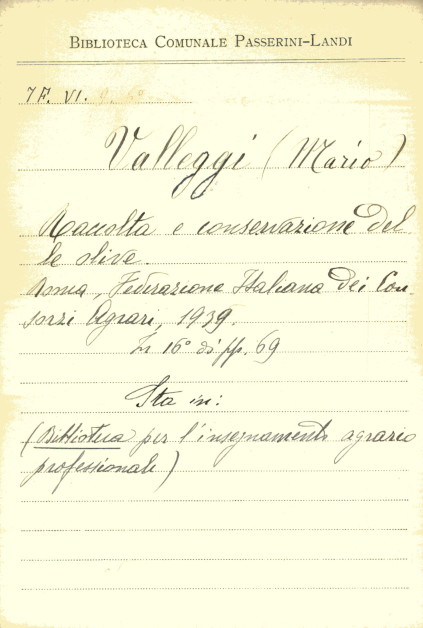 BIBLIOTECA COMUNALE PASSERINI-LANDI
7F. VI.
Valleggi (Mario)
Raccolta e conservazione del
le olive.
Roma, Federazione Italiana dei Con-
sorzi Agrari, 1939.
In 16° di pp. 69
Sta in:
(Biblioteca per l'insegnamento agrario
professionale)